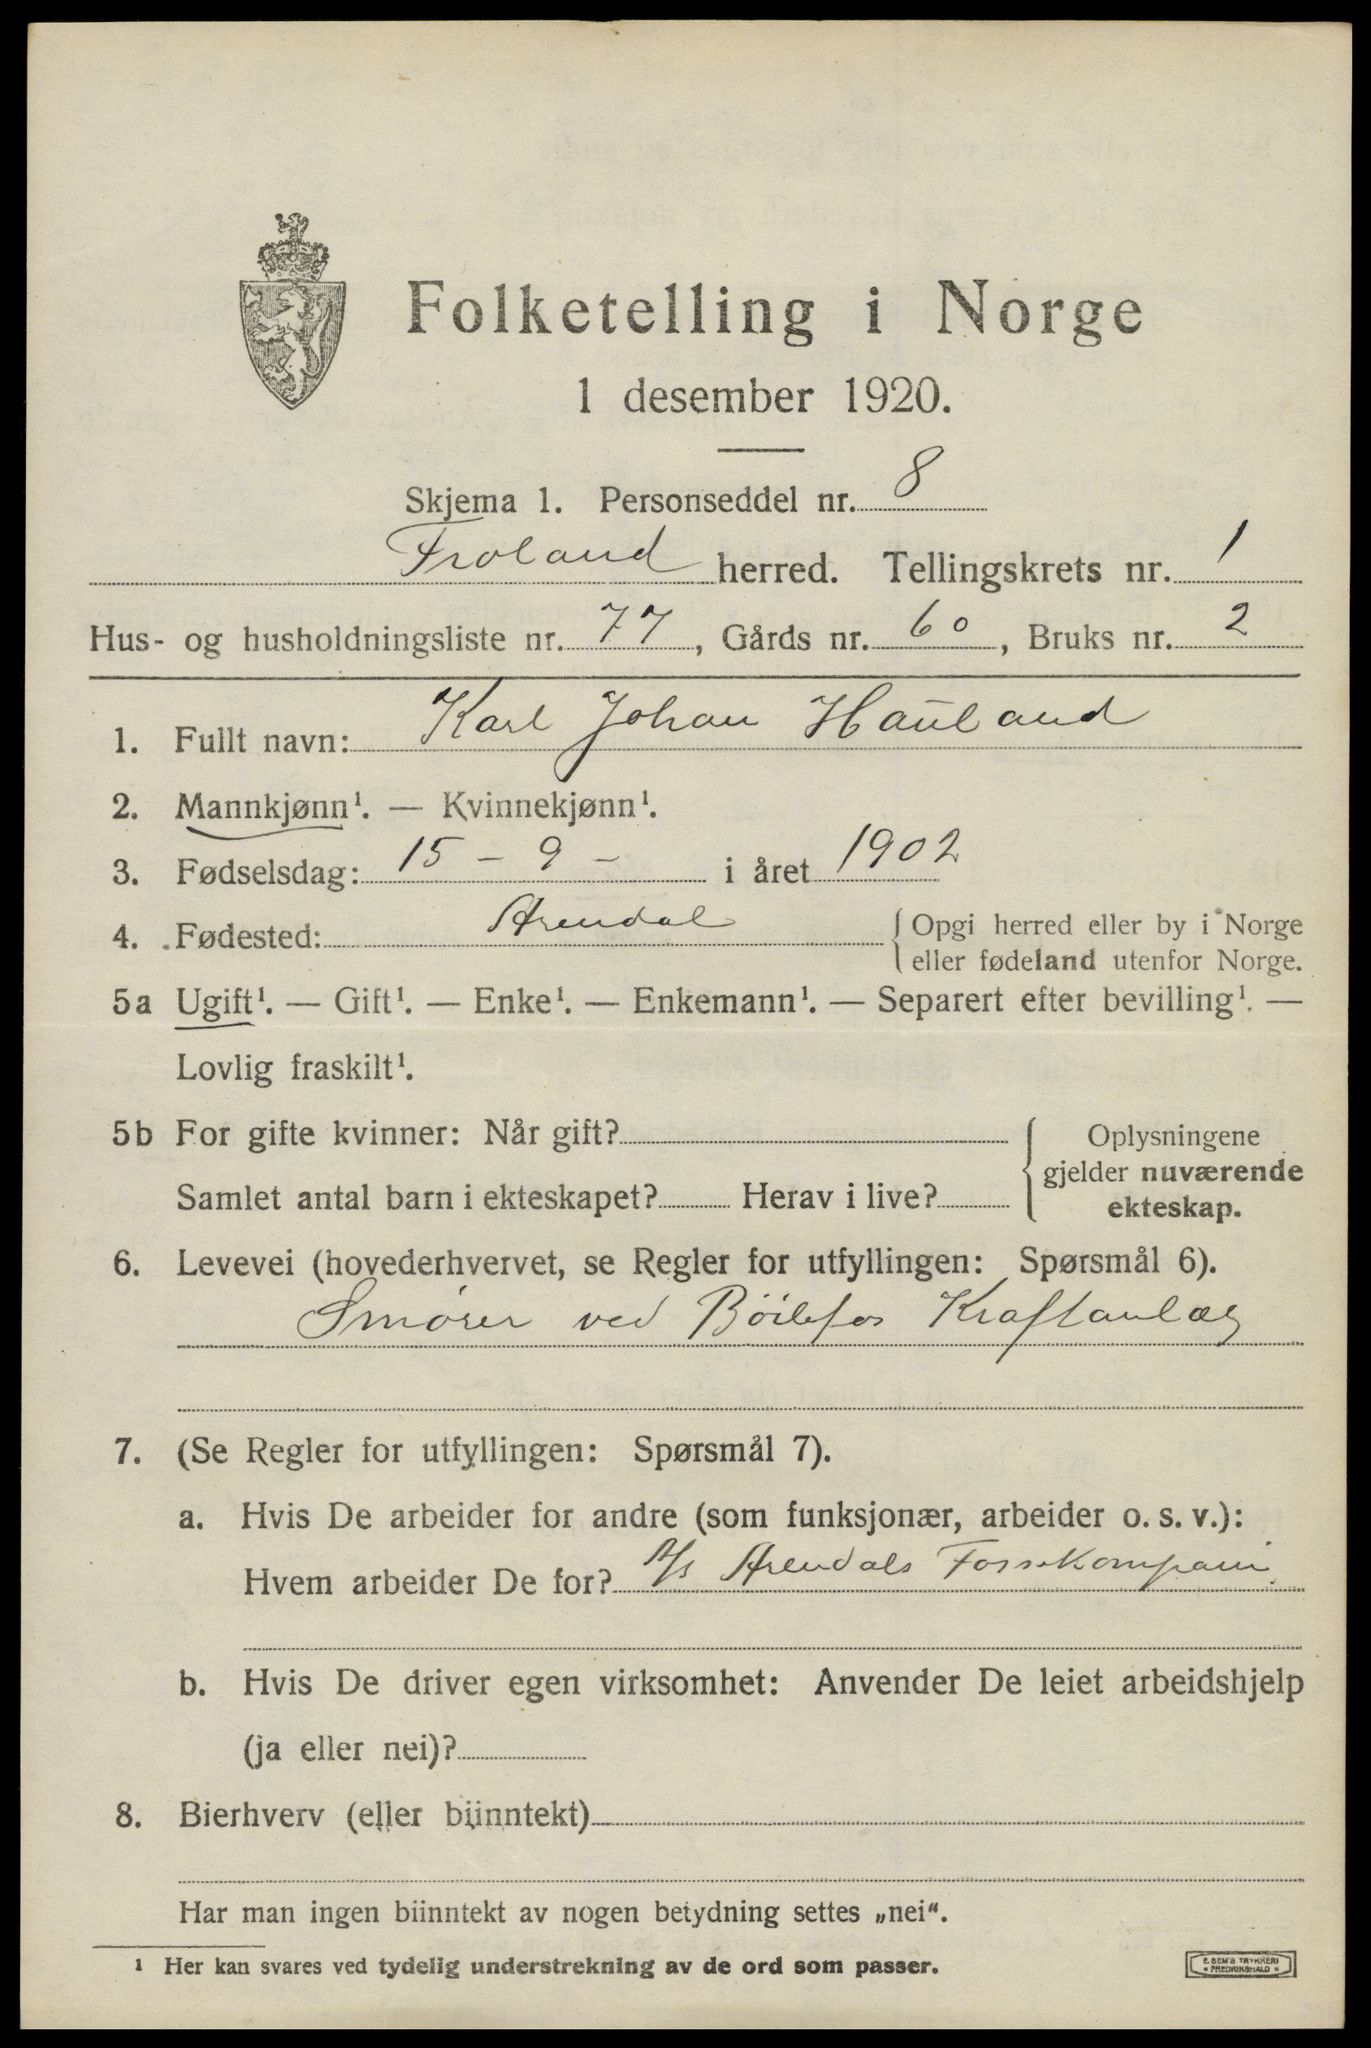 Folketelling i Norge
1 desember 1920.
Skjema 1. Personseddel nr. 8
Froland herred. Tellingskrets nr. 1
Hus- og husholdningsliste nr. 77, Gårds nr. 60, Bruks nr. 2
1. Fullt navn: Karl Johan Hauland
2. Mannkjønn¹. — Kvinnekjønn¹.
3. Fødselsdag: 15 - 9 - i året 1902
4. Fødested: Arendal { Opgi herred eller by i Norge
eller fødeland utenfor Norge.
5a Ugift¹. — Gift¹. — Enke¹. — Enkemann¹. — Separert efter bevilling¹. —
Lovlig fraskilt¹.
5b For gifte kvinner: Når gift? { Oplysningene
gjelder nuværende
Samlet antal barn i ekteskapet? Herav i live? ekteskap.
6. Levevei (hovederhvervet, se Regler for utfyllingen: Spørsmål 6).
Smører ved Böilefos Kraftanlæg
7. (Se Regler for utfyllingen: Spørsmål 7).
a. Hvis De arbeider for andre (som funksjonær, arbeider o. s. v.):
Hvem arbeider De for? A/s Arendals Fossekompani.
b. Hvis De driver egen virksomhet: Anvender De leiet arbeidshjelp
(ja eller nei)?
8. Bierhverv (eller biinntekt)
Har man ingen biinntekt av nogen betydning settes „nei“.
¹ Her kan svares ved tydelig understrekning av de ord som passer.
E. SEM'S TRYKKERI
* FREDRIKSHALD *